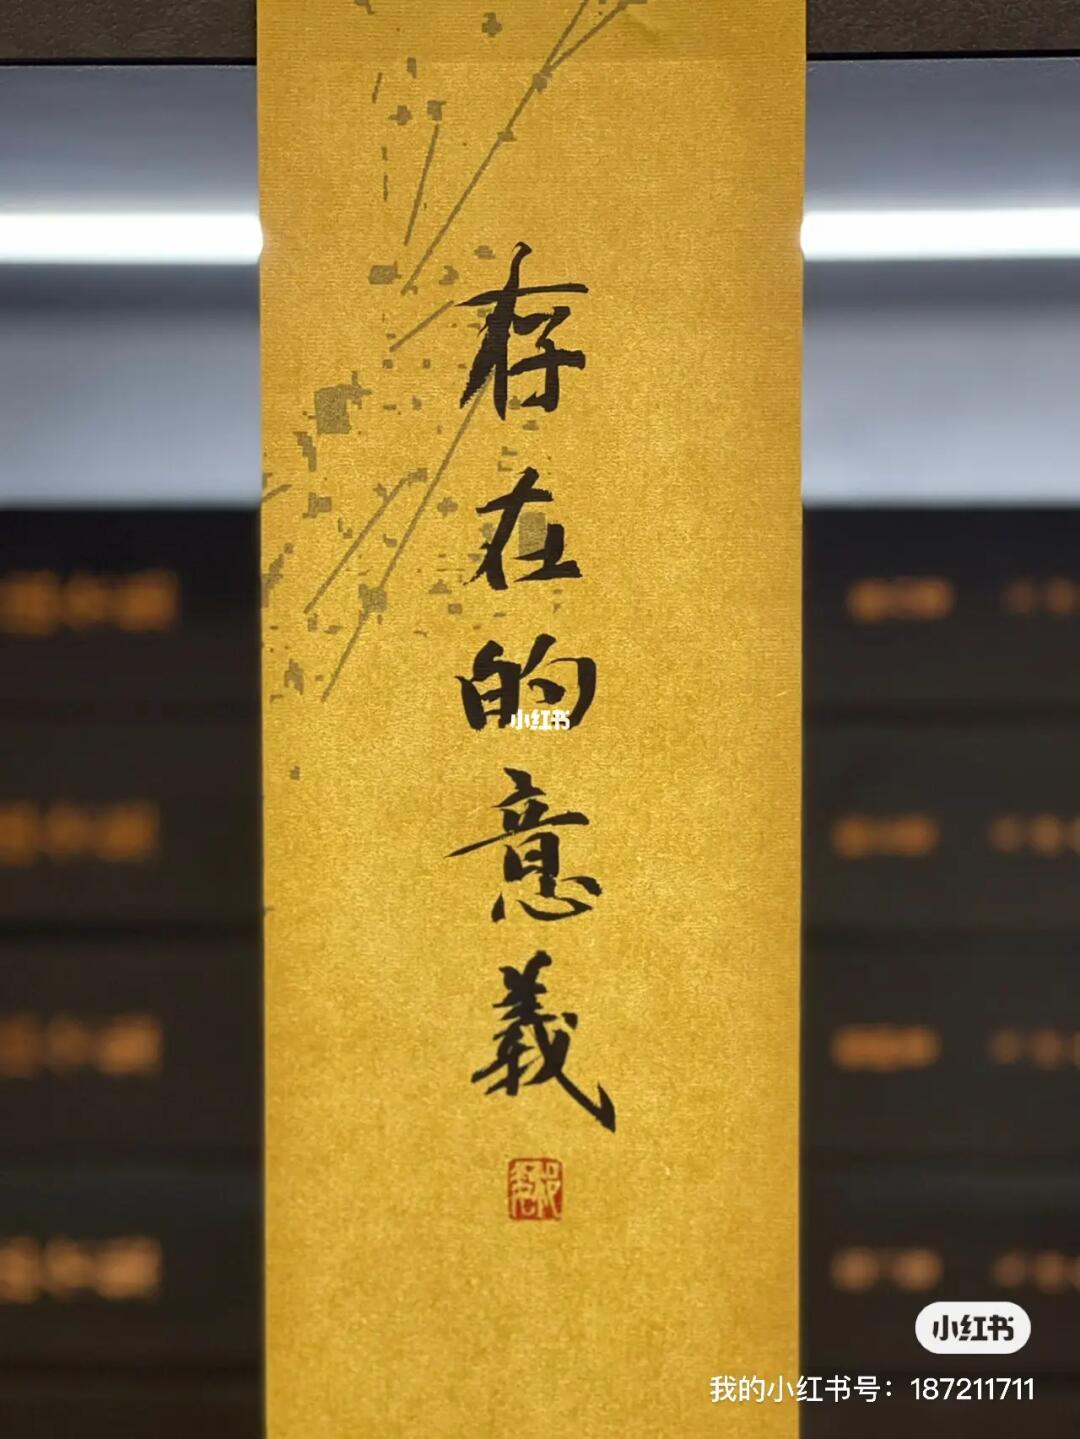 存在的意義
小红书
小红书
我的小红书号：187211711